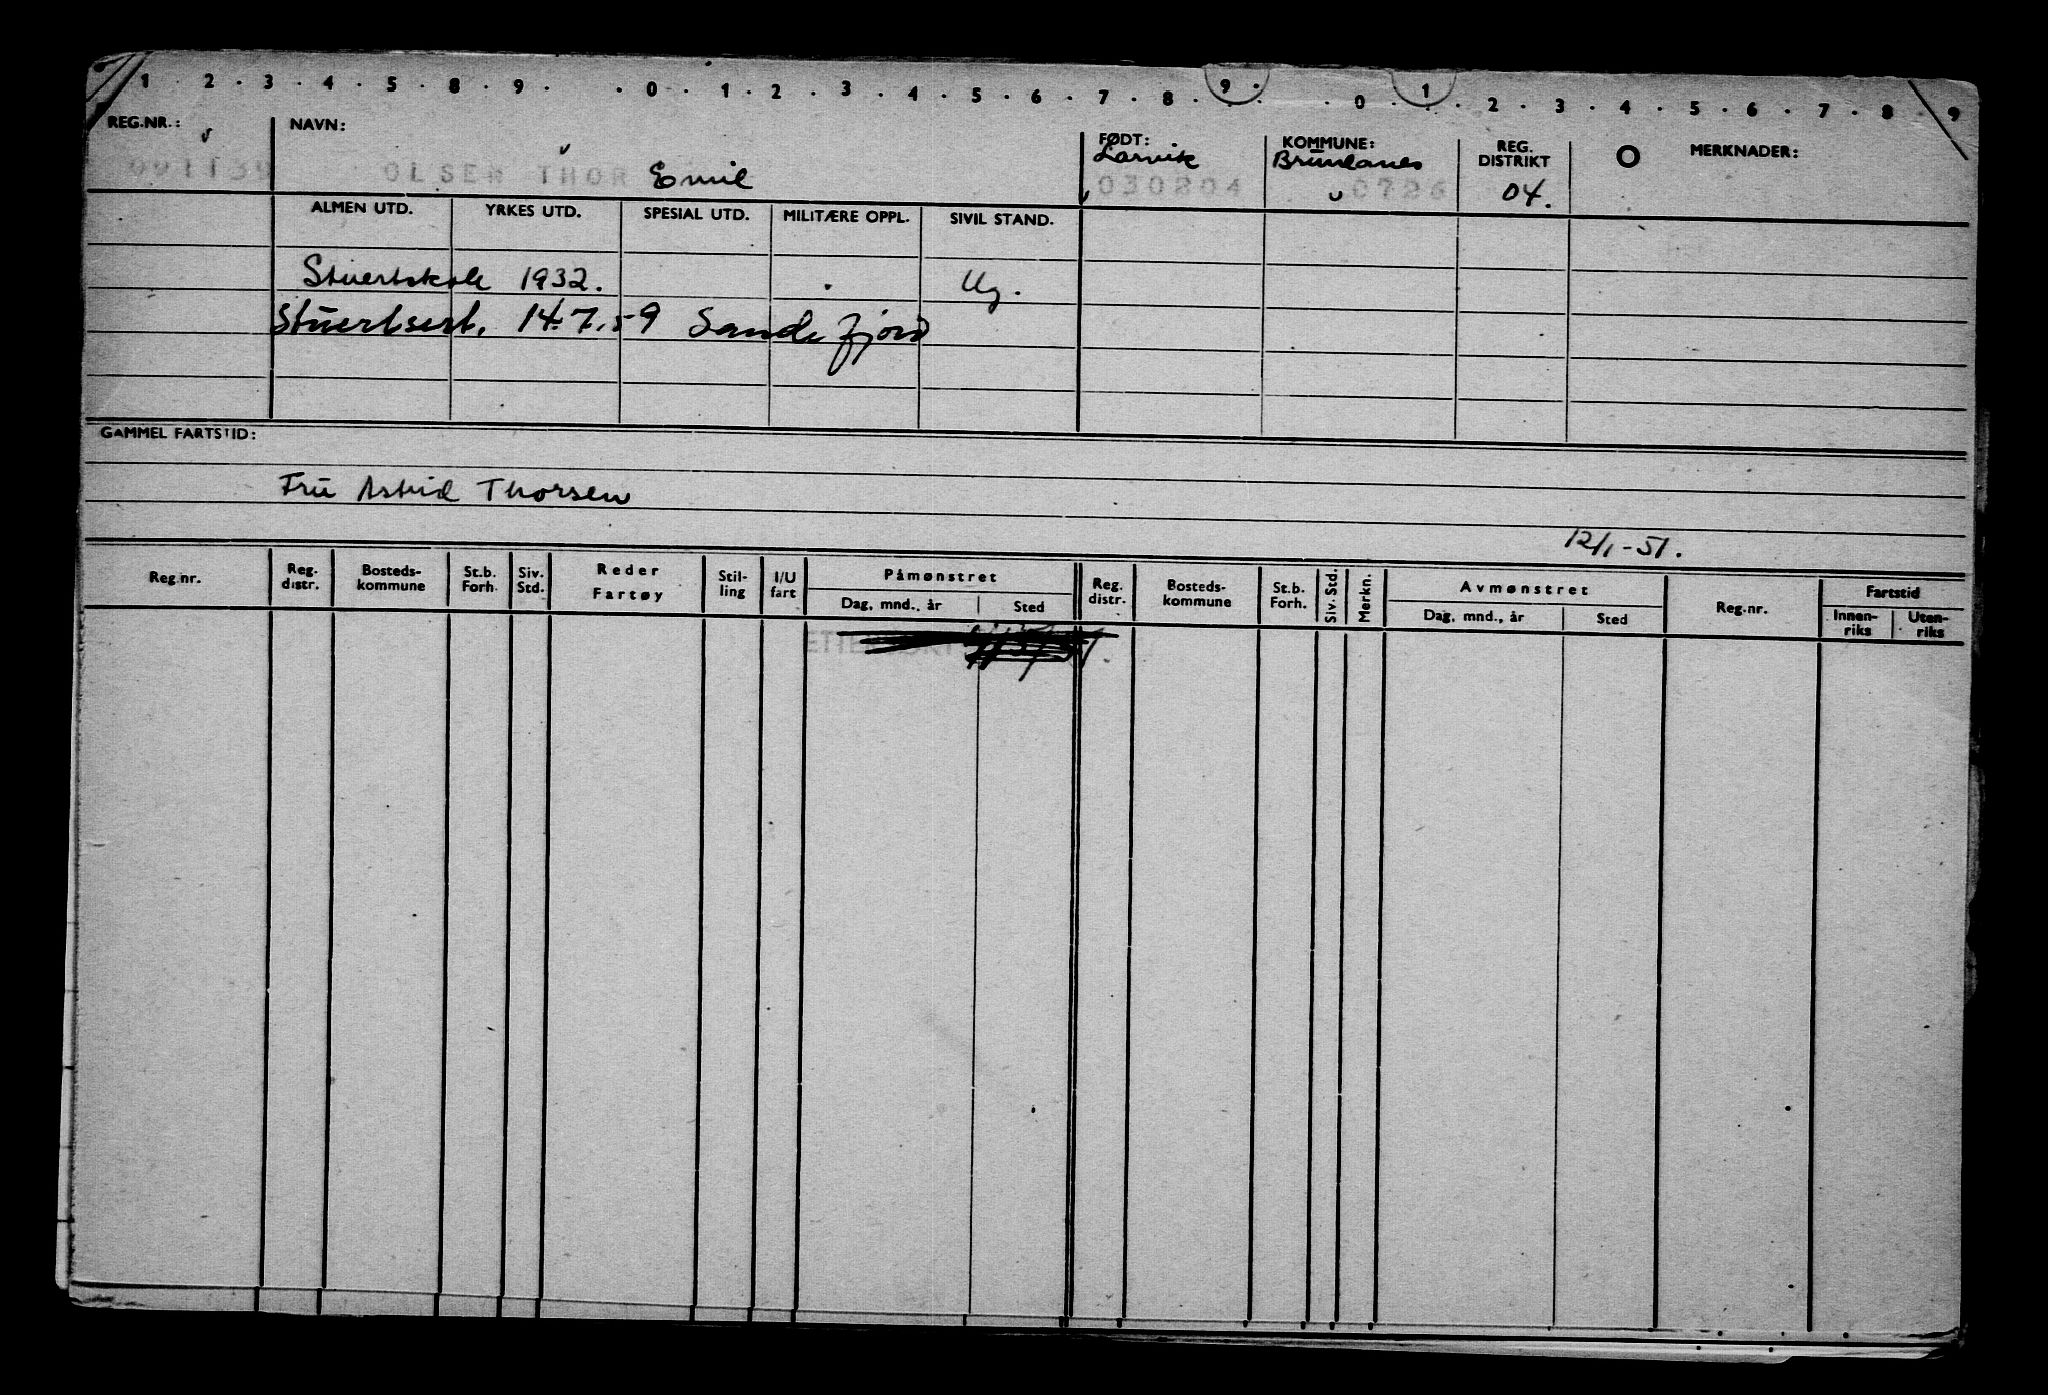 1 . 2 . 3 . 4 . 5 . 8 . 9 . . 0 . 1 . 2 . 3 . 4 . 5 . 6 . 7 . 8 . 9 . . 0 . 1 . 2 . 3 . 4 . 5 . 6 . 7 . 8 . 9
REG.NR.: NAVN: FØDT: KOMMUNE: REG. DISTRIKT O MERKNADER:
Larvik Brunlanes
001139 OLSEN THOR Emil 030204 0726 04.
ALMEN UTD. YRKES UTD. SPESIAL UTD. MILITÆRE OPPL. SIVIL STAND.
Stuertskole 1932. Ug.
Stuertsert. 14.7.59 Sandefjord
GAMMEL FARTSTID:
Fru Astrid Thorsen
12/1-51.
Reg.nr. Reg. distr. Bosteds-kommune St.b. Forh. Siv. Std. Reder Fartøy Stil-ling I/U fart Påmønstret Reg. distr. Bosteds-kommune St.b. Forh. Siv. Std. Merkn. Avmønstret Reg.nr. Fartstid
Dag, mnd., år Sted Dag, mnd., år Sted Innen-riks Uten-riks